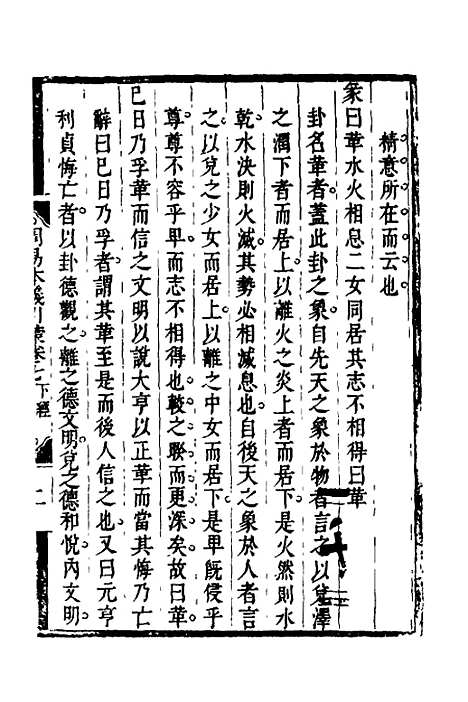 犄意所在而云也
彖曰革水火相息二女同居其志不相得曰革
卦名革者蓋此卦之象自先天之象於物者言之以兌澤
之潤下者而居上以離火之炎上者而居下是火然則水
乾水決則火滅其勢必相滅息也自後天之象於人者言
之以兌之少女而居上以離之中女而居下是卑旣侵乎
尊尊不容乎卑而志不相得也較之睽而更深矣故曰革
已日乃孚革而信之文明以說大亨以正革而當其悔乃亡
辭曰已日乃孚者謂其革至是而後人信之也又曰元亨
利貞悔亡者以卦德觀之離之德文明兌之德和悅內文明
周易本義引蒙卷七 下經 二